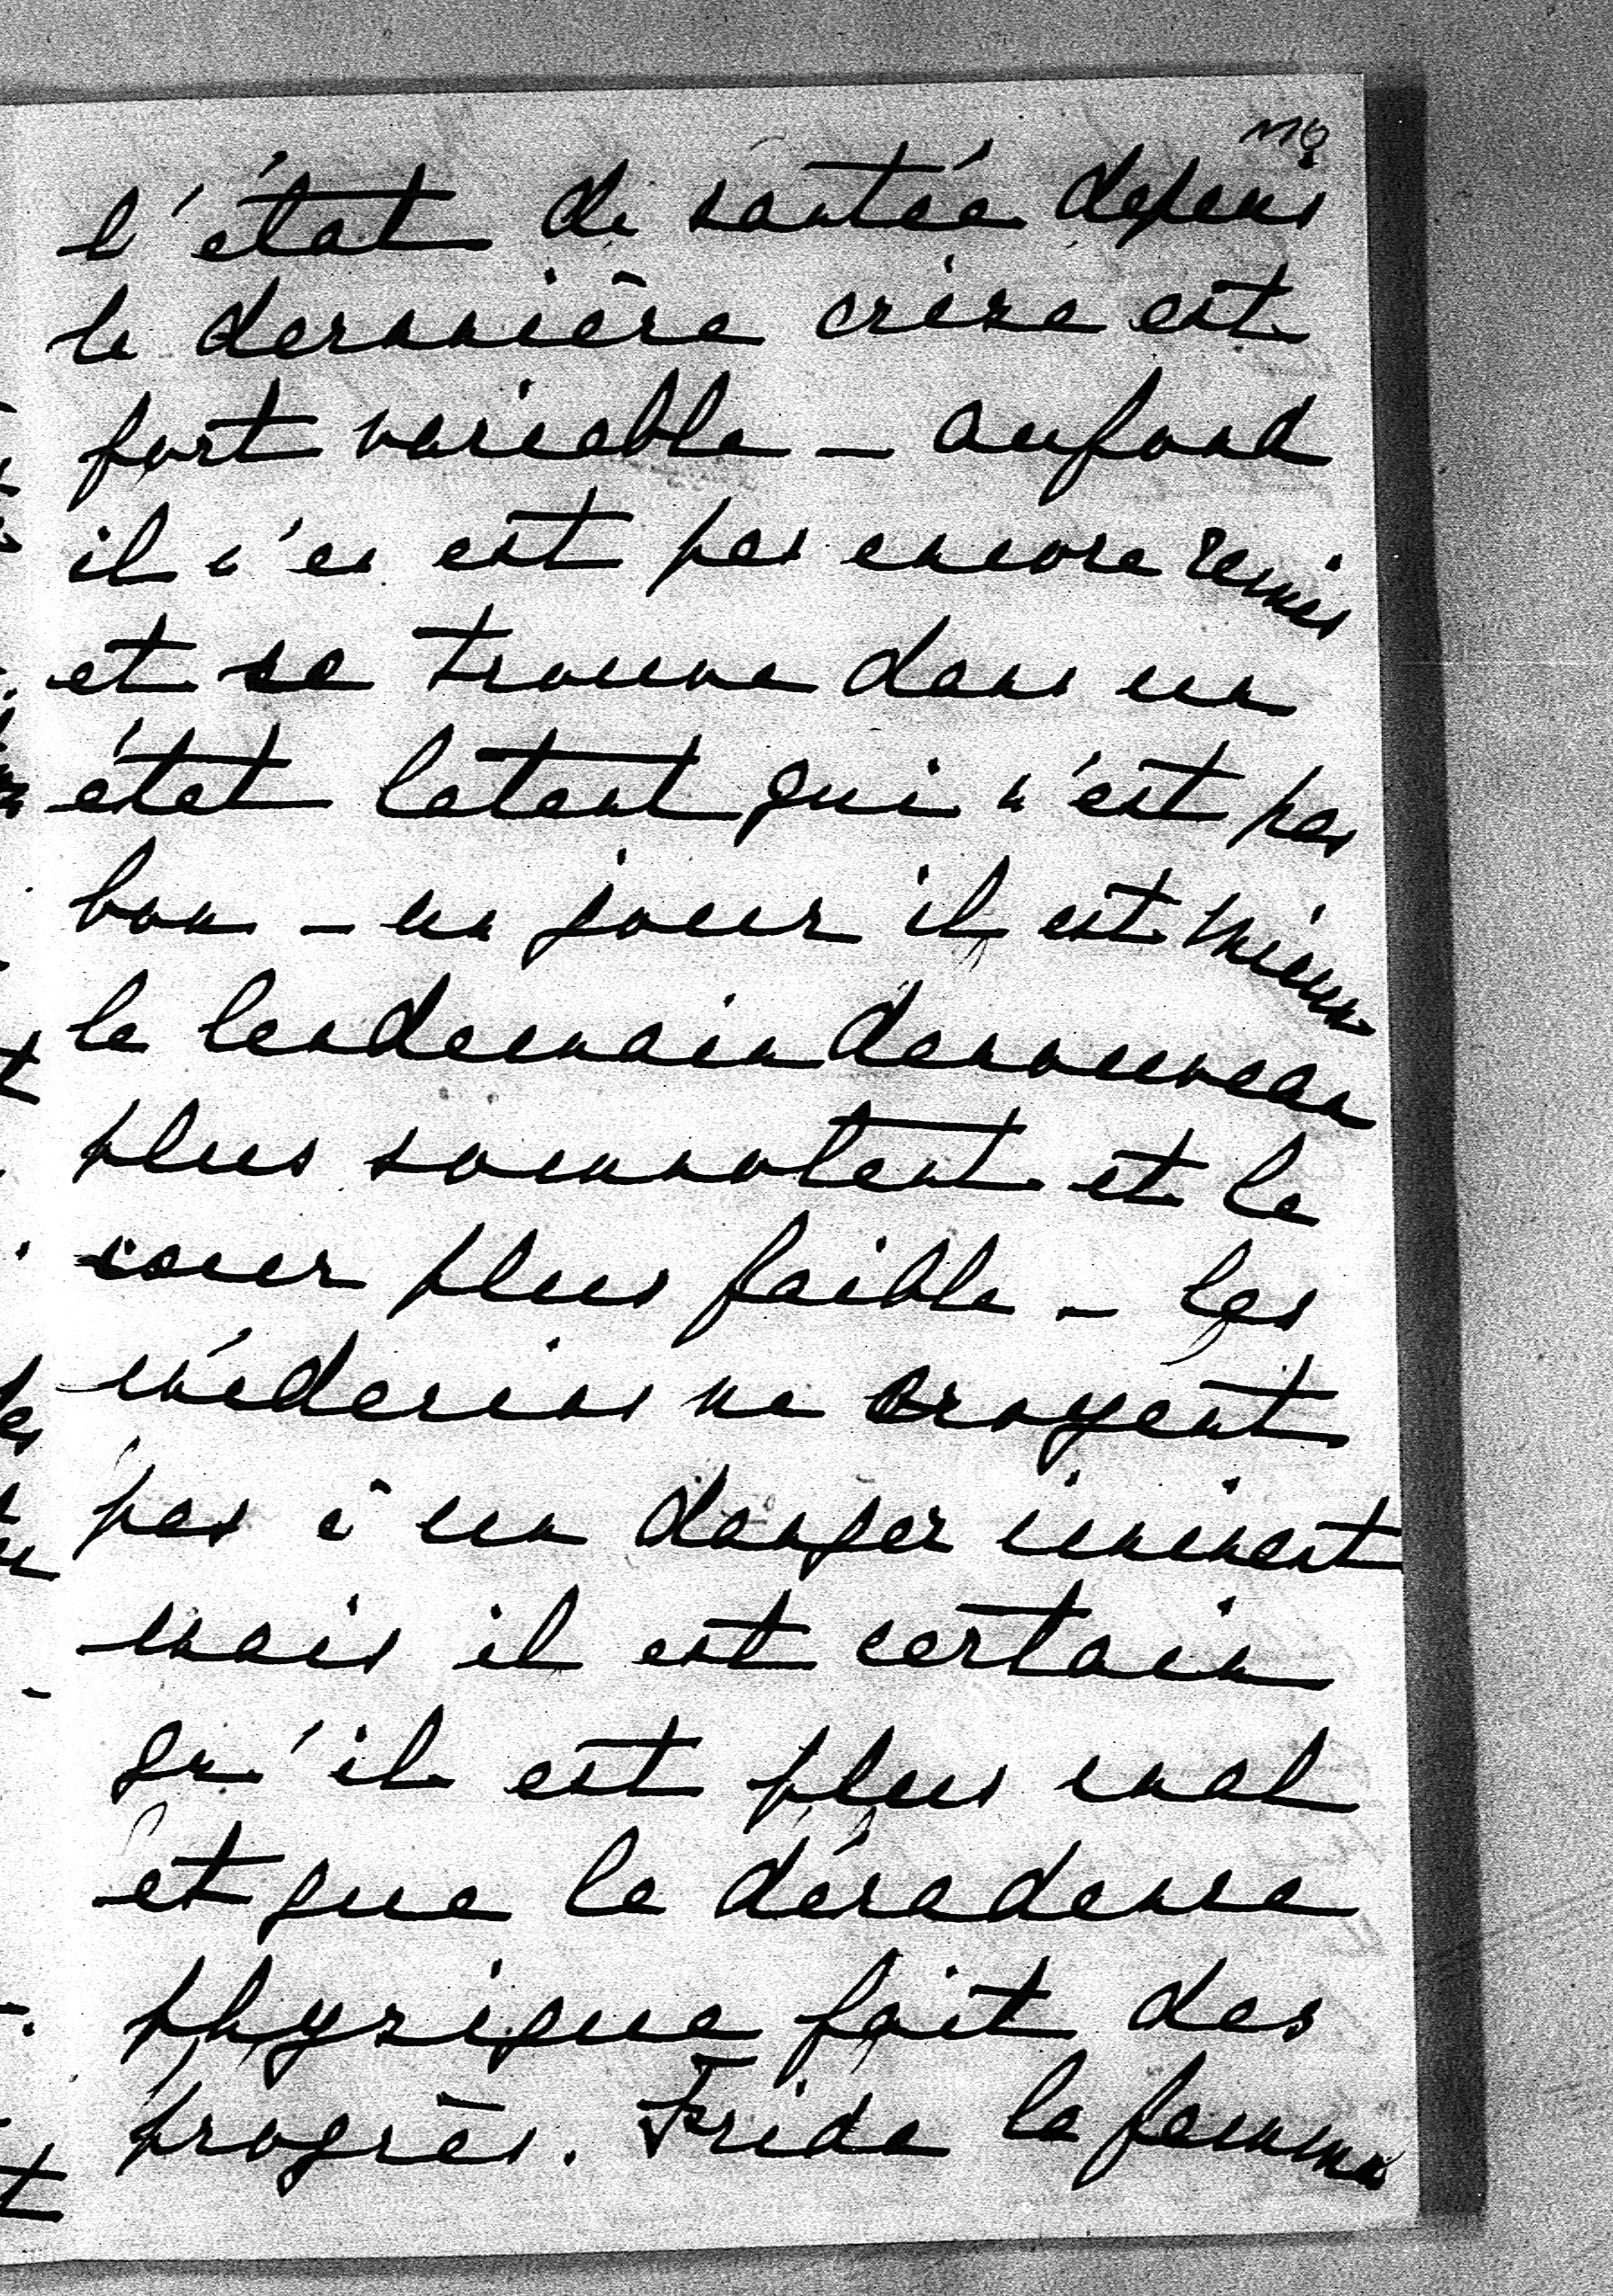 l'état de santée depuis
la dernnière crise est
fort variable — aufond
il n'en est pas encore remis
et se trouve dans un
état latent qui n'est pas
bon — un jour il est mieux
le lendemain denouveau
plus somnolent et le
cœur plus faible — les
médecins ne croyent
pas à un danger iminent
mais il est certain
qu'il est plus mal
et que la décadence
physique fait des
progrès. Frida la femme